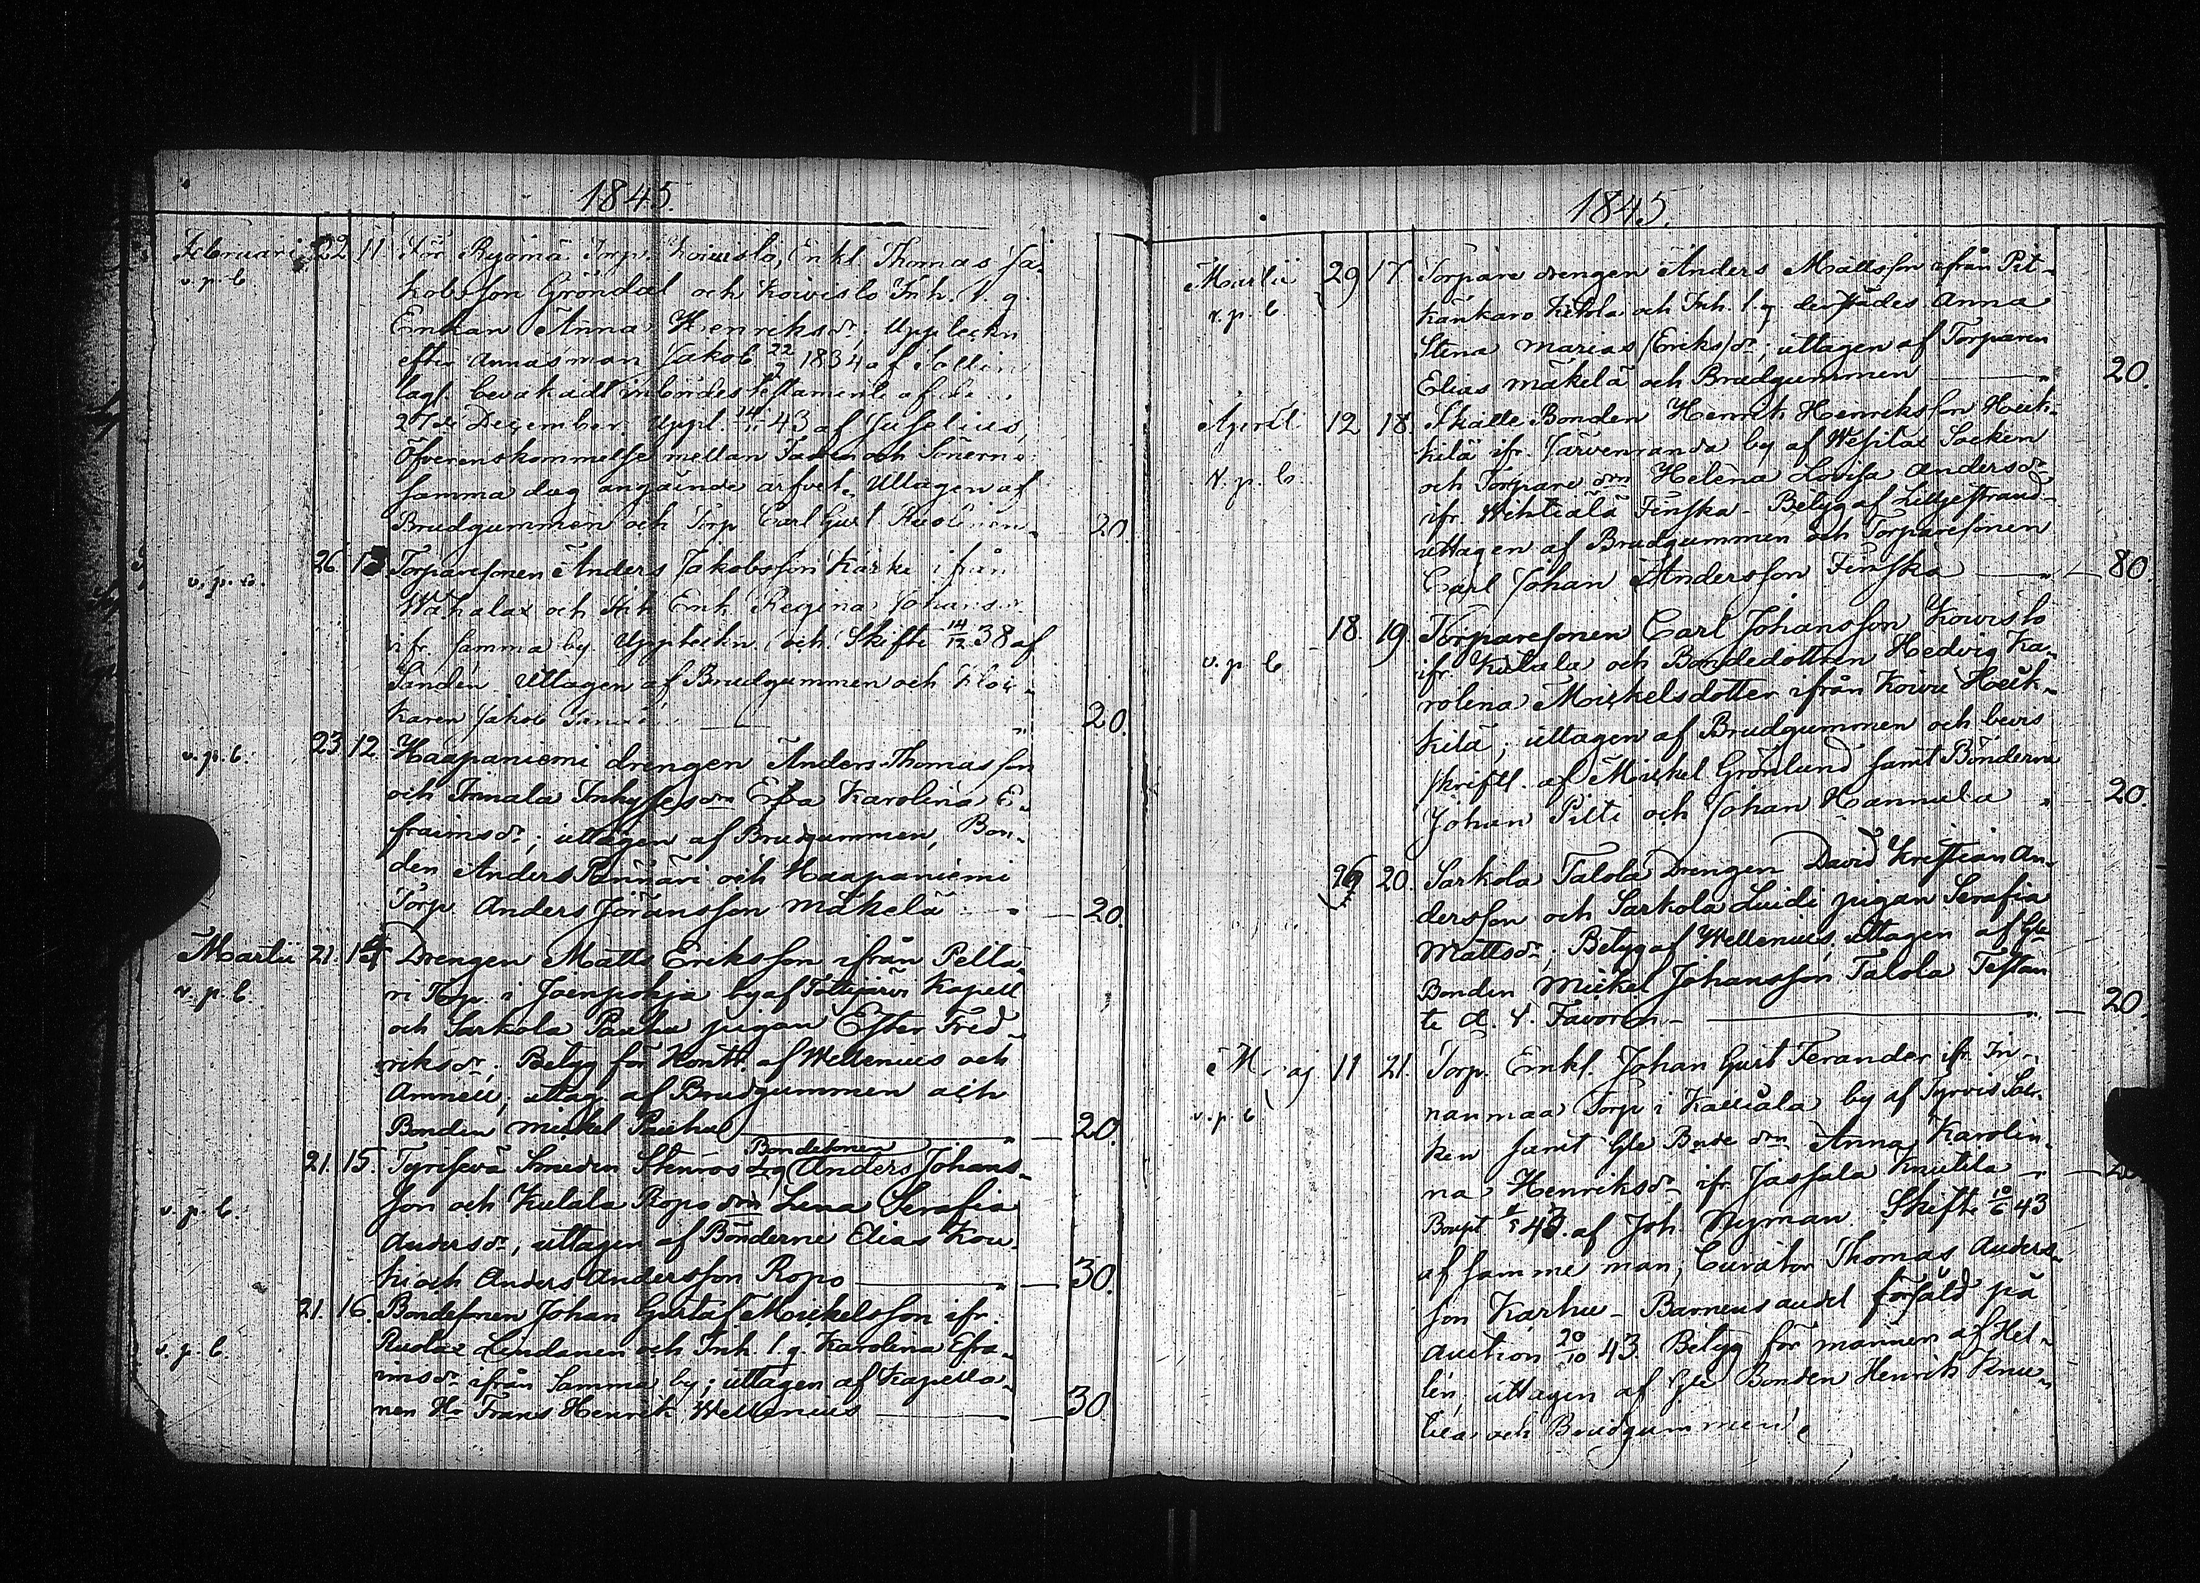 1845.
Februari 22 11 För Ryömä Torp. Koivisto, Enkl. Thomas Ja-
v. p. b. kobsson Gröndal och Koivisto Inh. l. g.
Enkan Anna Henriksdr; Uppteckn
efter Annas man Jakob 22/9 1834 af
lagl. bevakadt inbördes testamente af
27de December Uppl. 14/1 43 af Juselius,
Öfverenskommelse mellan Fadren och Sönerne
samma dag angående arfvet. Uttagen af
Brudgummen och Torp Carl Gust 20
v. p. b. 26 13 Torparesonen Anders Jakobsson Karke ifrån
Wahalax och Inh Enk Regina Johansdr
ifr. samma by. Uppteckn. och Skifte 14/12 38 af
Sandén. Uttagen af Brudgummen och Kloc-
karen Jakob 20.
v. p. b. 23 12. Haapaniemi drengen Anders Thomasson
och Annala Inhysesdn Efva Karolina E-
fraimsdr; uttagen af Brudgummen, Bon-
den Anders Pännäri och Haapaniemi
Torp. Anders Jöransson Mäkelä 20.
Martii 21. 14 Drengen Matts Eriksson ifrån Pella-
v. p. b. ri Torp i Joenpohja by af Tottijärvi Kapell
och Sarkola Pauhu pigan Ester Fred-
riksdr; Betyg för Kontr. af Wellenius och
Amnell; uttag. af Brudgummen och
Bonden Mickel Pauhu 20.
Bondesonen
21. 15. Tyrisevä Smeden Stenros drg Anders Johans-
v. p. b. son och Kulala Ropo dn Lena Serafia
Andersdr, uttagen af Bönderne Elias Kou-
ki och Anders Andersson Ropo 30.
21. 16. Bondesonen Johan Gustaf Mickelsson ifr.
v. p. b. Ruolax Lindanen och Inh. l. g. Karolina Efra-
imsdr ifrån Samma by; uttagen af Kapella-
nen Hr Frans Henrik Wellenius 30.
1845.
Martii 29 17. Torpare drengen Anders Mattsson ifrån Pit-
v. p. b. känkaro Ketola och Inh. l. g. derstädes Anna
Stena Marias (Eriks)dr; uttagen af Torparen
Elias Mäkelä och Brudgummen 20.
Aprill 12 18. Skatte Bonden Henrik Henriksson Heik-
v. p. b. kilä ifr. Järvenranda by af Wesilax Socken
och Torpare dn Helena Lovisa Andersdr
ifr. Wihtiälä Finska - Betyg af Liljestrand
uttagen af Brudgummen och Torparesonen
Carl Johan Andersson Finska 80.
18. 19. Torparesonen Carl Johansson Koivisto
v. p. b. ifr. Kulala och Bondedottren Hedvig Ka-
rolina Mickelsdotter ifrån Koivu Heik-
kilä; uttagen af Brudgummen och bevis
skriftl. af Mickel Grönlund samt Bönderne
Johan Pilti och Johan Hannula 20.
26 20. Sarkola Talola Drengen David Kristian An-
dersson och Sarkola Luidi pigan Serafia
Mattsdr; Betyg af Wellenius, uttagen af Gle
Bonden Mickel Johansson Talola Testan
te d. 4. Favoren 20.
Maj 11 21. Torp. Enkl. Johan Gust Ferander ifr. In-
v. p. b. nanmaa Torp i Kallialä by af Tyrvis Soc-
ken samt Gle Bnde dn Anna Karoli-
na Henriksdr ifr. Jassala Knutila 20
Boupt. 43 af Joh. Nyman. Skifte 10/6 43
af samme man; Curator Thomas Anders-
son Karhu - Barnens andel försåld på
Auction 20/10 43. Betyg för mannen af Hel-
lén, uttagen af Gle Bonden Henrik Knu-
tila och Brudgummen